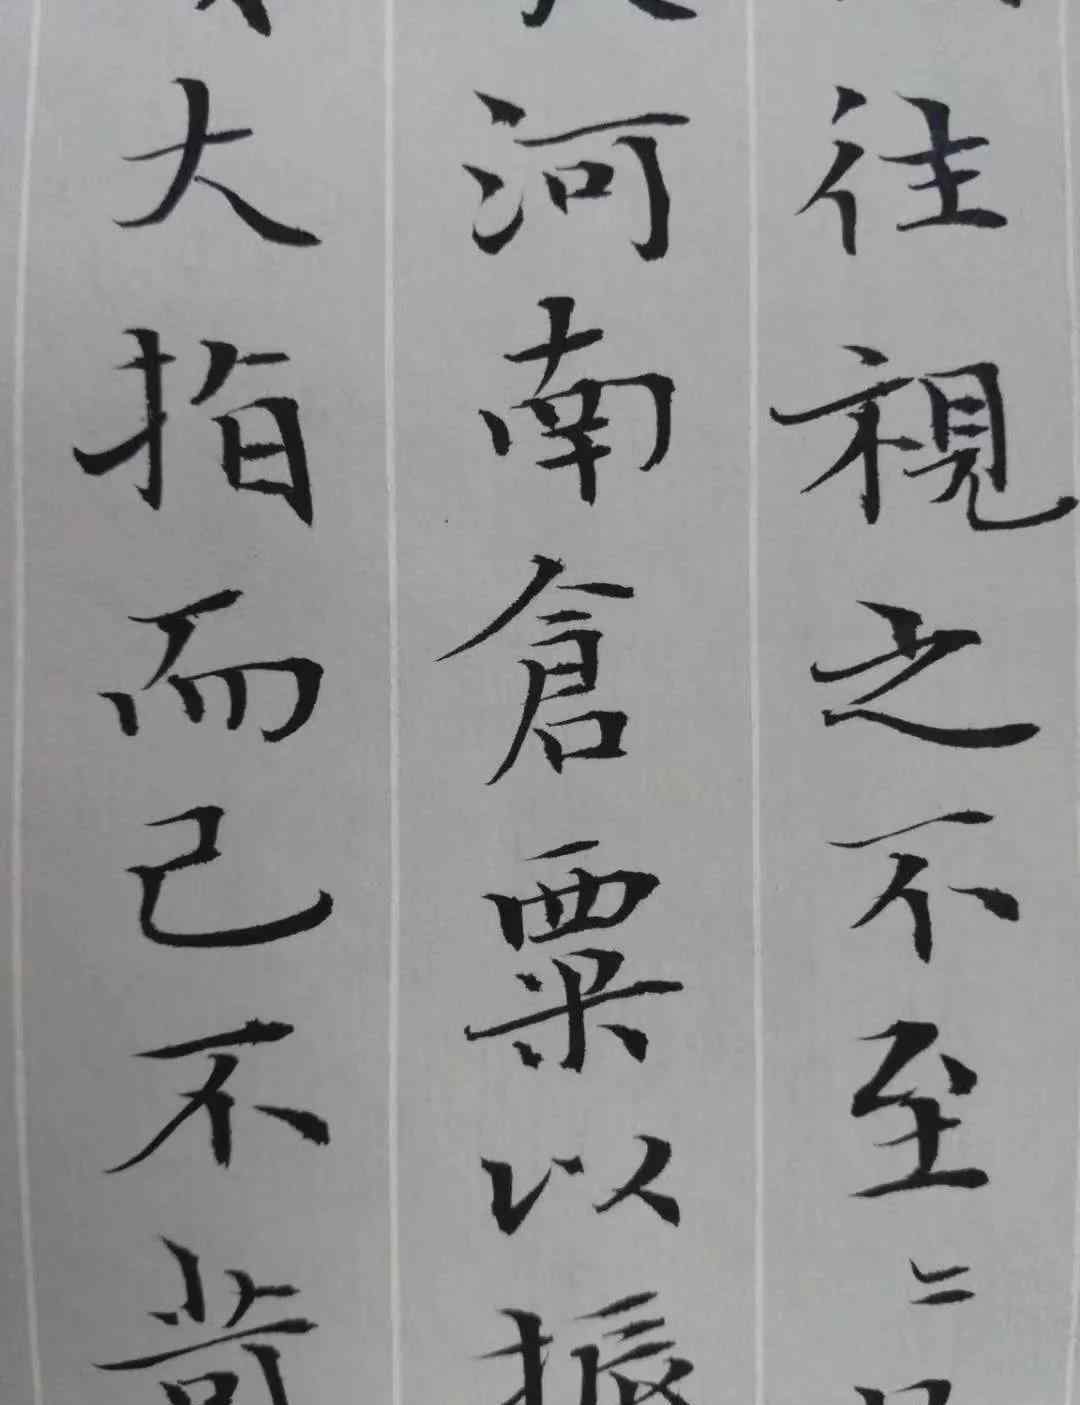 往視之不至〻
河南倉粟以振
大指而已不苛